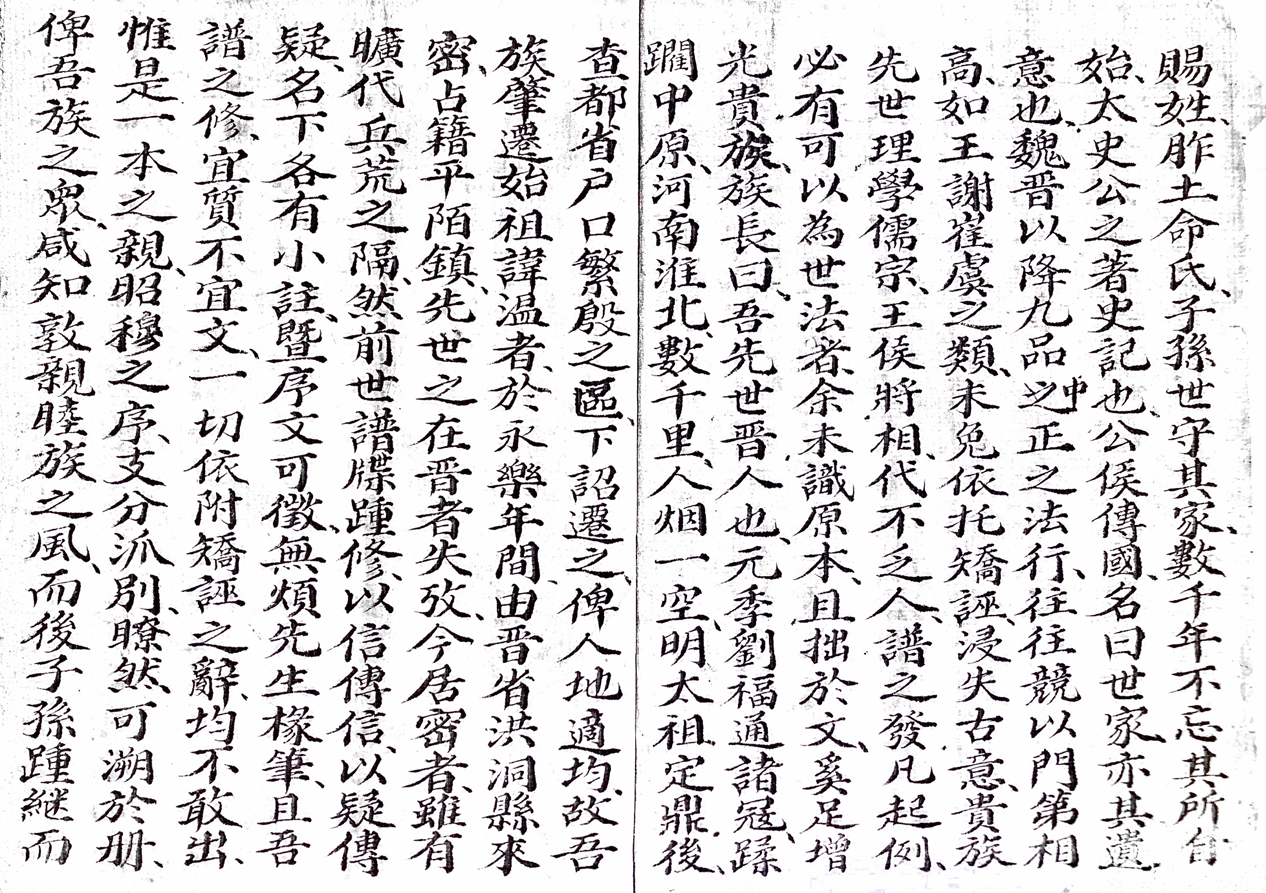 賜姓、胙土命氏、子孫世守其家、數千年不忘其所自
始、太史公之著史記也、公侯傳國、名曰世家、亦其遺
意也、魏晋以降九品中之正之法行、往往競以門第相
高、如王謝崔虞之類、未免依托矯誣、浸失古意、貴族
先世理學儒宗、王侯將相、代不乏人、譜之發凡起例、
必有可以為世法者、余未識原本、且拙於文、奚足增
光貴族、族長曰、吾先世晋人也、元季劉福通諸冠、蹂
躙中原、河南淮北、數千里、人烟一空、明太祖定鼎後、
查都省戶口繁殷之區、下詔遷之、俾人地適均、故吾
族肇遷始祖諱温者、於永樂年間、由晋省洪洞縣來
密、占籍平陌鎮、先世之在晋者失攷、今居密者、雖有
曠代兵荒之隔、然前世譜牒踵修、以信傳信、以疑傳
疑、名下各有小註、暨序文可徵、無煩先生椽筆、且吾
譜之修、宜質不宜文、一切依附矯誣之辭、均不敢出、
惟是一本之親、昭穆之序、支分派別、瞭然、可溯於册、
俾吾族之衆、咸知敦親睦族之風、而後子孫踵継而